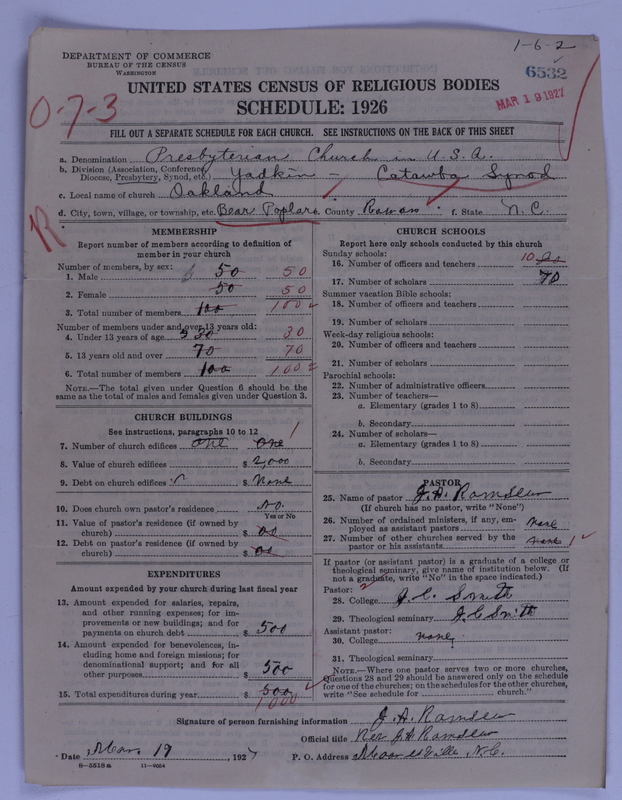 1-6-2
DEPARTMENT OF COMMERCE
BUREAU OF THE CENSUS
WASHINGTON
6532
MAR 19 1927
0-7-3
UNITED STATES CENSUS OF RELIGIOUS BODIES
SCHEDULE: 1926
FILL OUT A SEPARATE SCHEDULE FOR EACH CHURCH. SEE INSTRUCTIONS ON THE BACK OF THIS SHEET
a. Denomination Presbyterian Church in U.S.A.
b. Division (Association, Conference, Diocese, Presbytery, Synod, etc.) Yadkin - Catawba Synod
c. Local name of church Oakland
d. City, town, village, or township, etc. Bear Poplar County Rowan f. State N.C.
R
MEMBERSHIP
Report number of members according to definition of
member in your church
Number of members, by sex:
1. Male 50 50
2. Female 50 50
3. Total number of members 100 100
Number of members under and over 13 years old:
4. Under 13 years of age 30 30
5. 13 years old and over 70 70
6. Total number of members 100 100
NOTE.—The total given under Question 6 should be
the same as the total of males and females given under Question 3.
CHURCH BUILDINGS
See instructions, paragraphs 10 to 12
1
7. Number of church edifices one one
8. Value of church edifices $ 2,000
9. Debt on church edifices $ None
10. Does church own pastor's residence No.
Yes or No
11. Value of pastor's residence (if owned by
church) $
12. Debt on pastor's residence (if owned by
church) $
EXPENDITURES
Amount expended by your church during last fiscal year
13. Amount expended for salaries, repairs,
and other running expenses; for im-
provements or new buildings; and for
payments on church debt $ 500
14. Amount expended for benevolences, in-
cluding home and foreign missions; for
denominational support; and for all
other purposes $ 500
15. Total expenditures during year $ 500
1000
CHURCH SCHOOLS
Report here only schools conducted by this church
Sunday schools:
16. Number of officers and teachers 10
17. Number of scholars 70
Summer vacation Bible schools:
18. Number of officers and teachers
19. Number of scholars
Week-day religious schools:
20. Number of officers and teachers
21. Number of scholars
Parochial schools:
22. Number of administrative officers
23. Number of teachers—
a. Elementary (grades 1 to 8)
b. Secondary
24. Number of scholars—
a. Elementary (grades 1 to 8)
b. Secondary
PASTOR
25. Name of pastor J.A.
(If church has no pastor, write "None")
26. Number of ordained ministers, if any, em-
ployed as assistant pastors none
27. Number of other churches served by the
pastor or his assistants none 1
If pastor (or assistant pastor) is a graduate of a college or
theological seminary, give name of institution below. (If
not a graduate, write "No" in the space indicated.)
Pastor:
28. College J.C. Smith
29. Theological seminary J.C Smith
Assistant pastor:
30. College none
31. Theological seminary
NOTE.—Where one pastor serves two or more churches,
Questions 28 and 29 should be answered only on the schedule
for one of the churches; on the schedules for the other churches,
write "See schedule for church."
Signature of person furnishing information J.A.
Official title Rev J A
Date Mar 17, 1927 P. O. Address N.C.
8-5518a 11-9054